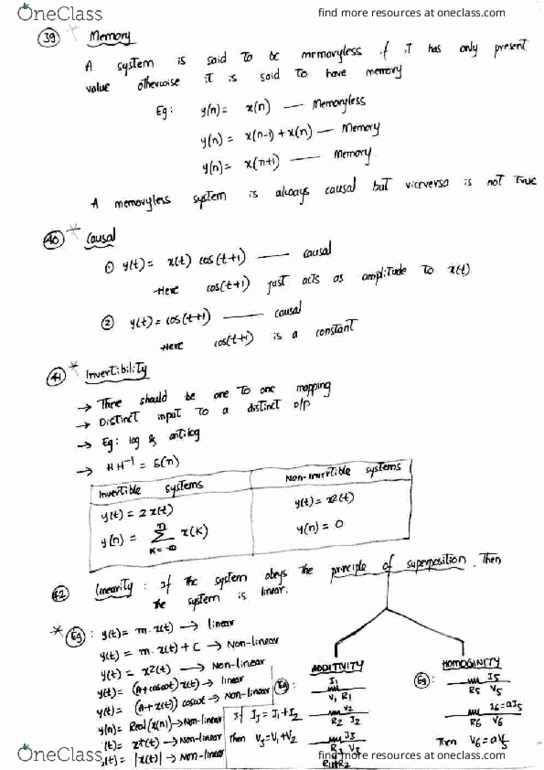 OneClass
find more resources at oneclass.com
39 * Memory
A system is said to be memoryless if it has only present
value otherwise it is said to have memory
Eg: y(n) = x(n) — Memoryless
y(n) = x(n-1) + x(n) — Memory
y(n) = x(n+1) — Memory
A memoryless system is always causal but viceversa is not true
40 * Causal
① y(t) = x(t) cos(t+1) — causal
Here cos(t+1) just acts as amplitude to x(t)
② y(t) = cos(t+1) — causal
Here cos(t+1) is a constant
41 * Invertibility
→ There should be one to one mapping
→ Distinct input to a distinct o/p
→ Eg: log & antilog
→ H H⁻¹ = δ(n)
Invertible systems
y(t) = 2x(t)
y(n) = Σ x(k)
n
k=-∞
Non-invertible systems
y(t) = x²(t)
y(n) = 0
42 Linearity: If the system obeys the principle of superposition. Then
the system is linear.
* Eg: y(t) = m.x(t) → linear
y(t) = m.x(t) + C → Non-linear
y(t) = x²(t) → Non-linear
y(t) = (A+cosωt) x(t) → linear
y(t) = (A+x(t)) cosωt → Non-linear
y(n) = Real(x(n)) → Non-linear
(t) = x*(t) → Non-linear
(t) = |x(t)| → Non-linear
ADDITIVITY
Eg:
I1
V1 R1
V2
R2 I2
I3
R3 V3
R1+R2
If I3 = I1 + I2
Then V3 = V1 + V2
HOMOGINCITY
Eg:
I5
R5 V5
I6 = aI5
R6 V6
Then V6 = aV5
OneClass
find more resources at oneclass.com